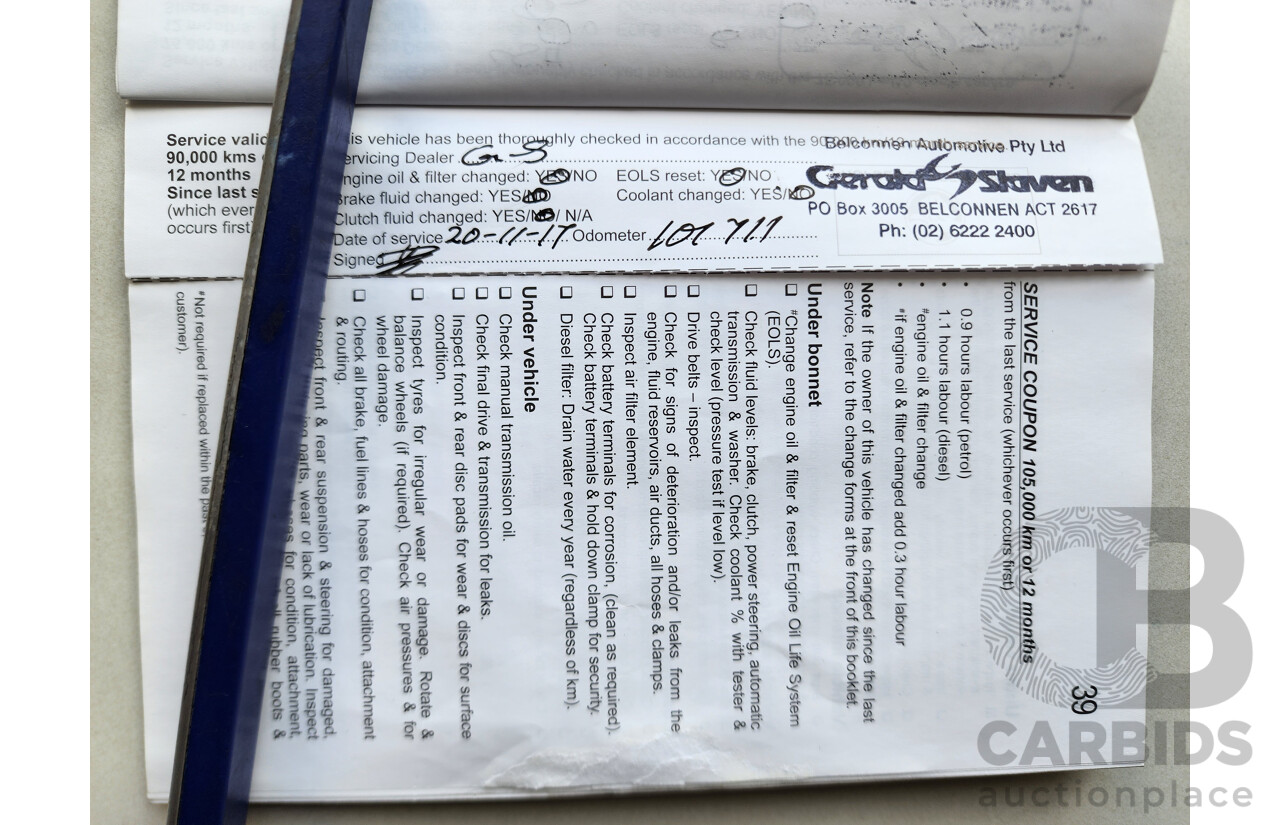 Service valid
90,000 kms
12 months
Since last s
(which ever
occurs first
is vehicle has been thoroughly checked in accordance with the 90,000 km/12 m
ervicing Dealer G S
ngine oil & filter changed: YES/NO EOLS reset: YES/NO
Brake fluid changed: YES/NO Coolant changed: YES/NO
Clutch fluid changed: YES/NO/ N/A
Date of service 20-11-17 Odometer 101711
Signed
Belconnen Automotive Pty Ltd
Gerald Slaven
PO Box 3005 BELCONNEN ACT 2617
Ph: (02) 6222 2400
39
SERVICE COUPON 105,000 km or 12 months
from the last service (whichever occurs first)
• 0.9 hours labour (petrol)
• 1.1 hours labour (diesel)
• #engine oil & filter change
• *if engine oil & filter changed add 0.3 hour labour
Note If the owner of this vehicle has changed since the last
service, refer to the change forms at the front of this booklet.
Under bonnet
❑ #Change engine oil & filter & reset Engine Oil Life System
(EOLS).
❑ Check fluid levels: brake, clutch, power steering, automatic
transmission & washer. Check coolant % with tester &
check level (pressure test if level low).
❑ Drive belts – inspect.
❑ Check for signs of deterioration and/or leaks from the
engine, fluid reservoirs, air ducts, all hoses & clamps.
❑ Inspect air filter element.
❑ Check battery terminals for corrosion, (clean as required).
Check battery terminals & hold down clamp for security.
❑ Diesel filter: Drain water every year (regardless of km).
Under vehicle
❑ Check manual transmission oil.
❑ Check final drive & transmission for leaks.
❑ Inspect front & rear disc pads for wear & discs for surface
condition.
❑ Inspect tyres for irregular wear or damage. Rotate &
balance wheels (if required). Check air pressures & for
wheel damage.
❑ Check all brake, fuel lines & hoses for condition, attachment
& routing.
Inspect front & rear suspension & steering for damaged,
parts, wear or lack of lubrication. Inspect
for condition, attachment,
rubber boots &
#Not required if replaced within the past
customer).
CB
CARBIDS
auctionplace